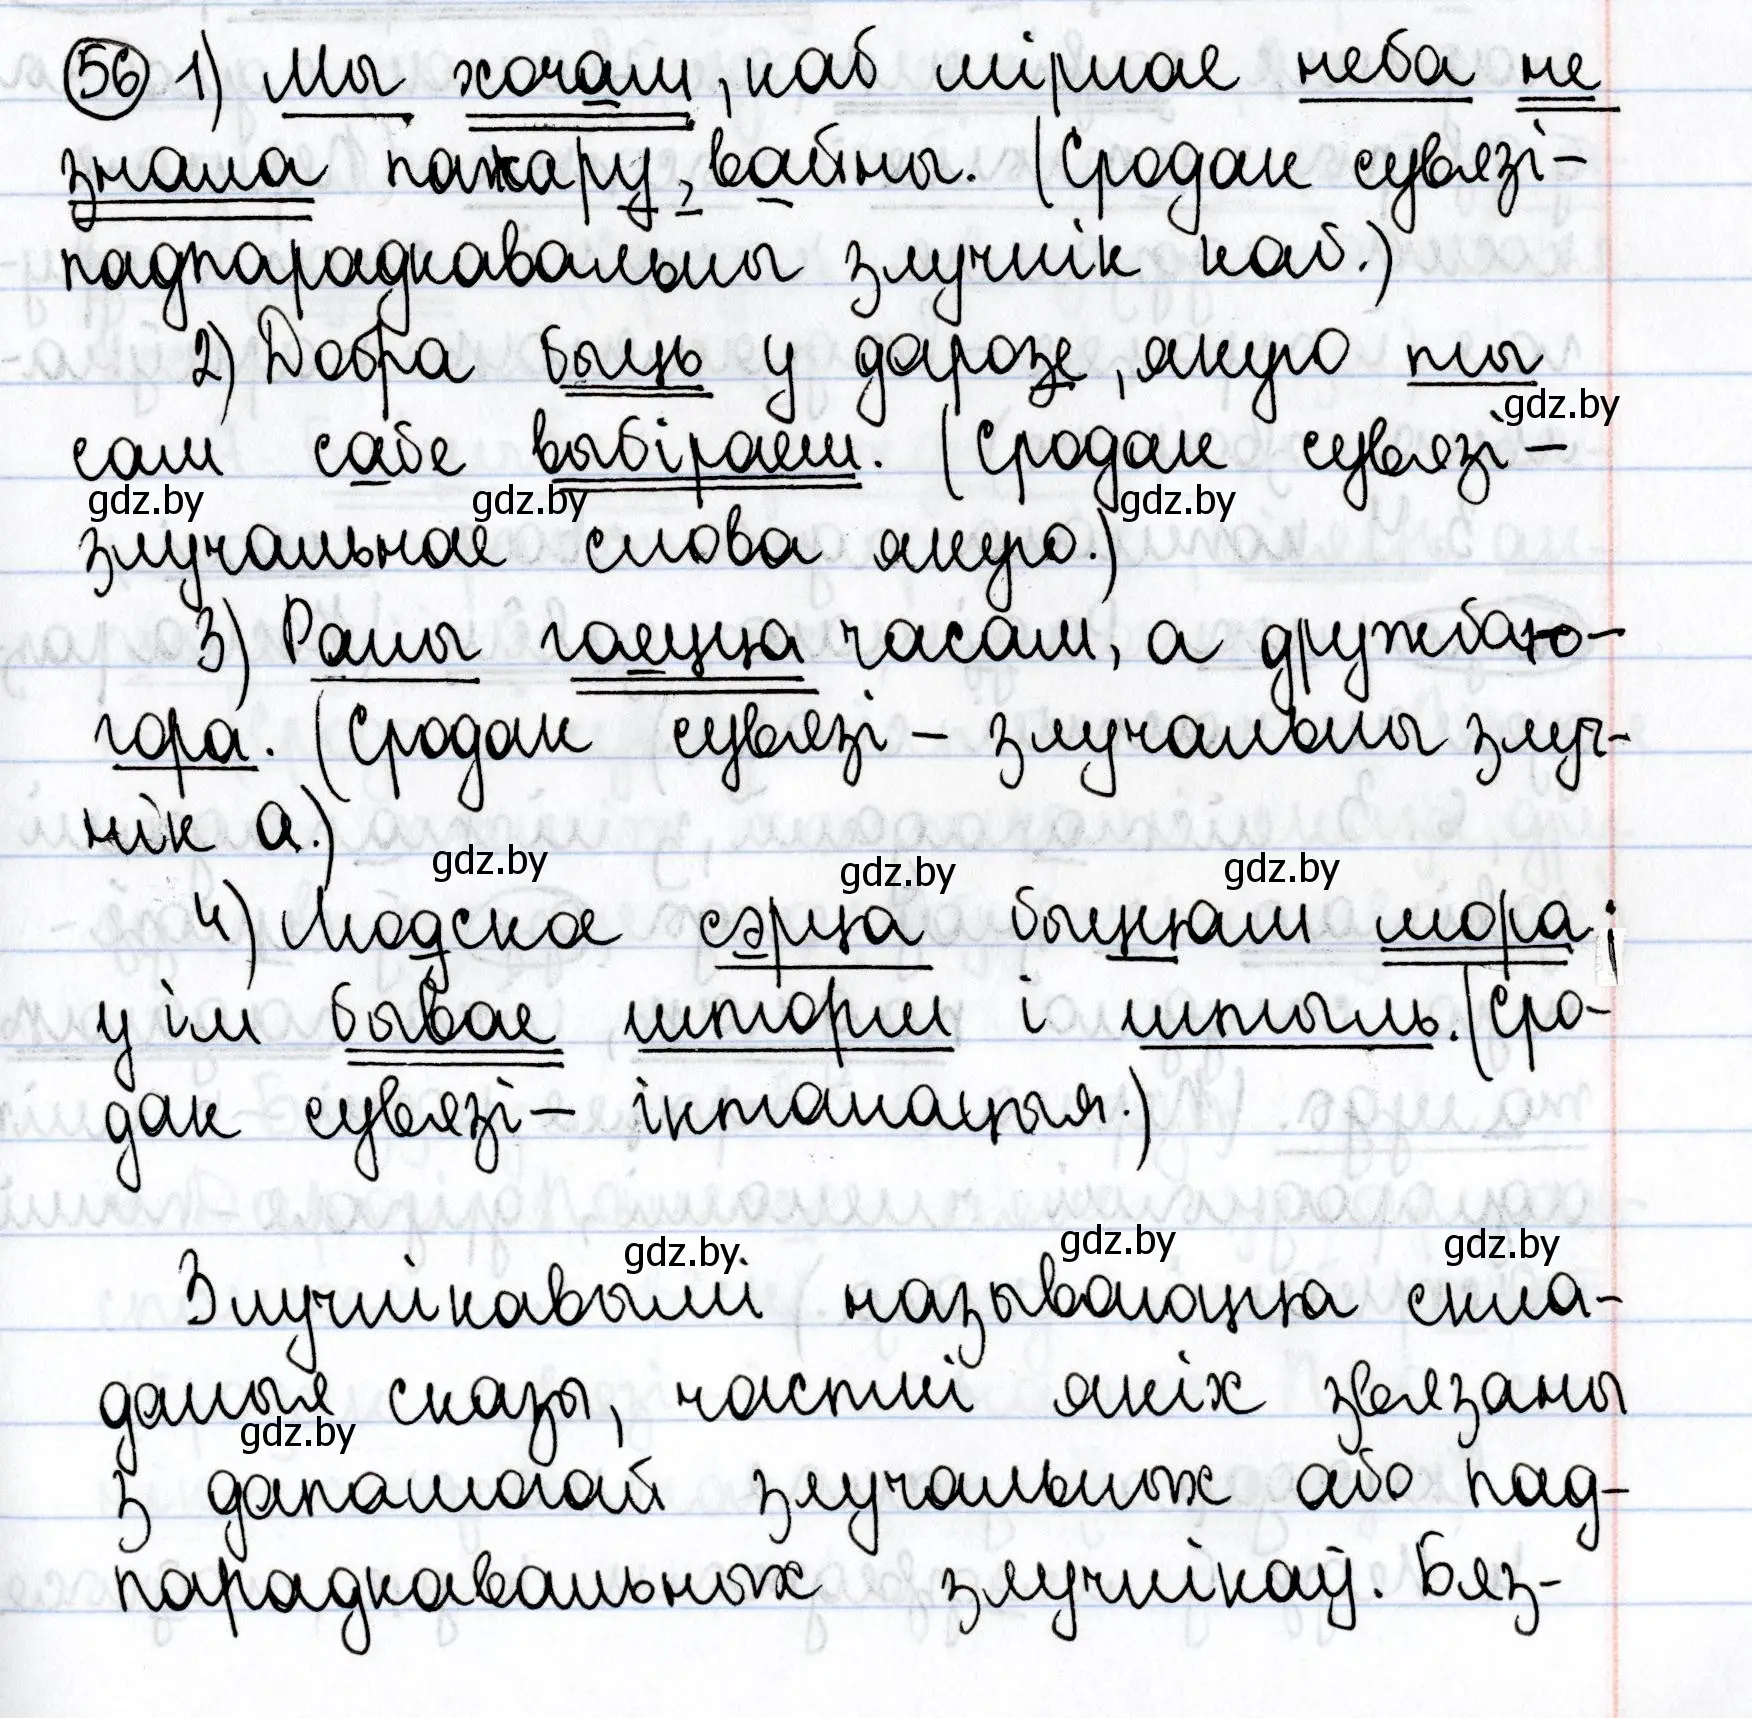 56 1) Мы хочам, каб мірнае неба не
знала пажару, вайны. (Сродак сувязі –
падпарадкавальны злучнік каб.)
2) Добра быць у дарозе, якую ты
gdz.by
сам сабе выбіраеш. (Сродак сувязі –
gdz.by gdz.by gdz.by
злучальнае слова якую.)
3) Раны гаяцца часам, а дружбаю –
гора. (Сродак сувязі – злучальны злуч-
нік а.)
gdz.by gdz.by gdz.by
4) Людское сэрца быццам мора;
у ім бывае шторм і штыль. (Сро-
дак сувязі – інтанацыя.)
gdz.by gdz.by gdz.by
Злучнікавымі называюцца скла-
даныя сказы, часткі якіх звязаны
gdz.by
з дапамогай злучальных або пад-
парадкавальных злучнікаў. Бяз-